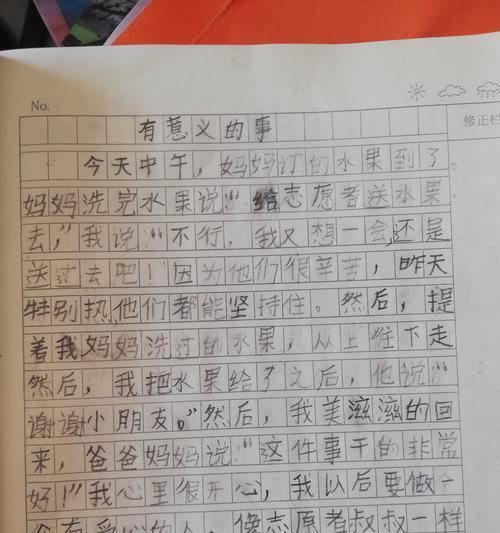 No.
修正栏
有意义的事
今天中午，妈妈订的水果到了。
妈妈洗完水果说：“给志愿者送水果
去，”我说：“不行，我又想一会，还是
送过去吧！因为他们很辛苦，昨天
特别热，他们都能坚持住。然后，提
着我妈妈洗过的水果，从上往下走
然后，我把水果给了之后，他说：“
谢谢小朋友。”然后，我美滋滋的回
来，爸爸妈妈说：“这件事干的非常
好！”我心里很开心，我以后要做一
个有爱心的人，像志愿者叔叔一样